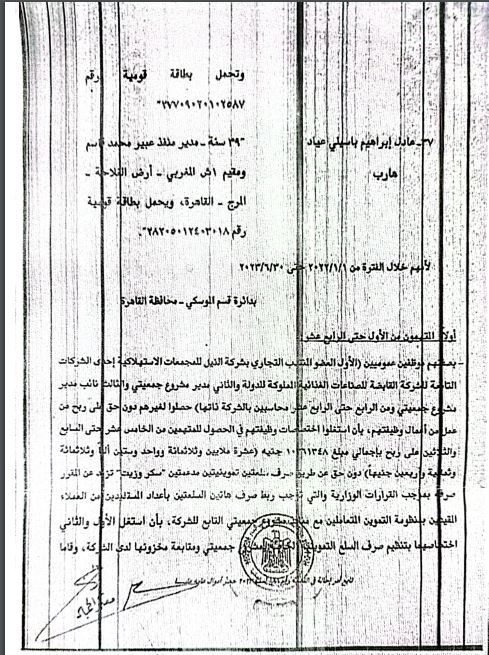 وتحمل بطاقة قومية رقم
"٢٧٧٠٩٠٢٠١٠٢٥٨٧"
٣٧ـ عادل إبراهيم باسيلي عياد
"٣٩ سنة ـ مدير منفذ عبير محمد قاسم
هارب
ومقيم ١ش المغربي ـ أرض الفلاحة ـ
المرج ـ القاهرة، ويحمل بطاقة قومية
رقم ٢٨٢٠٥٠١٢٤٠٣٠١٨".
لأنهم خلال الفترة من ٢٠٢٢/١/١ حتى ٢٠٢٣/٦/٣٠
بدائرة قسم الموسكي ـ محافظة القاهرة
أولاً: المتهمون من الأول حتى الرابع عشر:
ـ بصفتهم موظفين عموميين (الأول العضو المنتدب التجاري بشركة النيل للمجمعات الاستهلاكية إحدى الشركات
التابعة للشركة القابضة للصناعات الغذائية المملوكة للدولة والثاني مدير مشروع جمعيتي والثالث نائب مدير
مشروع جمعيتي ومن الرابع حتى الرابع عشر محاسبين بالشركة ذاتها) حصلوا لغيرهم دون حق على ربح من
عمل من أعمال وظيفتهم، بأن استغلوا اختصاصات وظيفتهم في الحصول للمتهمين من الخامس عشر حتى السابع
والثلاثين على ربح بإجمالي مبلغ ١٠٣٦١٣٤٨ جنيه (عشرة ملايين وثلاثمائة وواحد وستين ألفاً وثلاثمائة
وثمانية وأربعين جنيهاً) دون حق عن طريق صرف سلعتين تموينيتين مدعمتين "سكر وزيت" تزيد عن المقرر
صرفه بموجب القرارات الوزارية والتي توجب ربط صرف هاتين السلعتين بأعداد المستفيدين من العملاء
المقيدين بمنظومة التموين المتعاملين مع منافذ مشروع جمعيتي التابع للشركة، بأن استغل الأول والثاني
اختصاصهما بتنظيم صرف السلع التموينية مشروع جمعيتي ومتابعة مخزونها لدى الشركة، وقاما